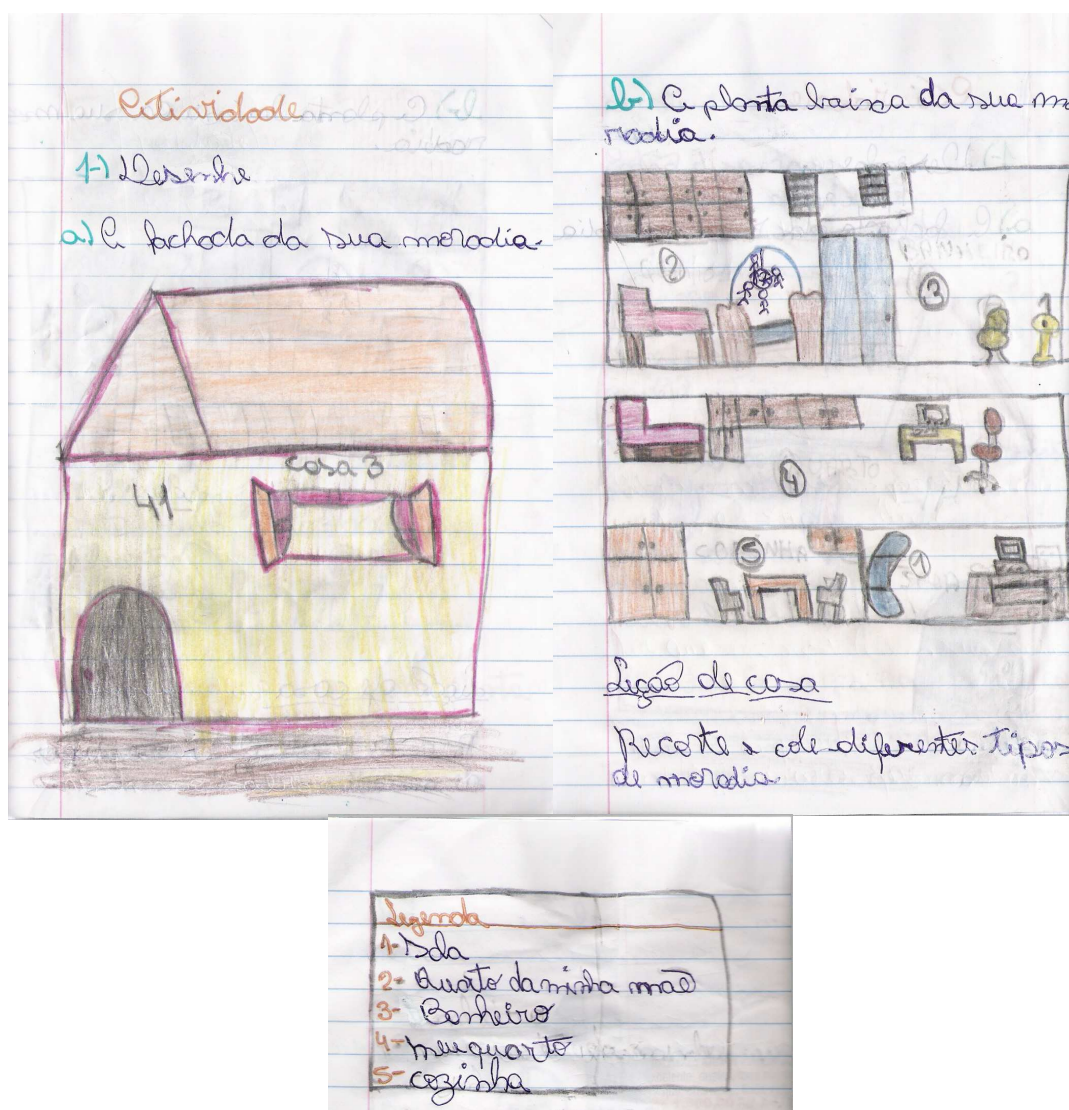 Atividade
1-) Desenhe
a) A fachada da sua moradia.
casa 3
41
b) A planta baixa da sua mo
radia.
2
3
4
5
1
Lição de casa
Recorte e cole diferentes tipos
de moradia
Legenda
1- Sala
2- Quarto da minha mãe
3- Banheiro
4- meu quarto
5- cozinha